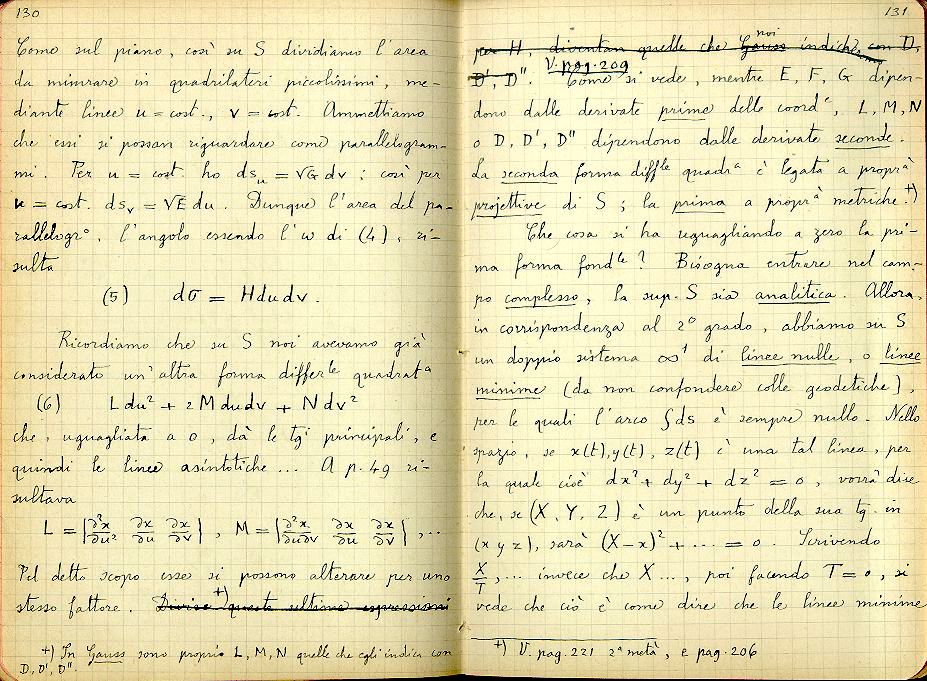 130
Come sul piano, così su S dividiamo l'area
da misurare in quadrilateri piccolissimi, me-
diante linee u = cost., v = cost. Ammettiamo
che essi si possan riguardare come parallelogram-
mi. Per u = cost. ho ds_u = √G dv ; così per
v = cost. ds_v = √E du. Dunque l'area del pa-
rallelogr°, l'angolo essendo l'ω di (4), ri-
sulta
(5) dσ = H du dv.
Ricordiamo che su S noi avevamo già
considerato un'altra forma differ^le quadrat^a
(6) L du² + 2 M du dv + N dv²
che, uguagliata a 0, dà le tgi principali, e
quindi le linee asintotiche ... A p. 49 ri-
sultava
L = |∂²x/∂u² ∂x/∂u ∂x/∂v| , M = |∂²x/∂u∂v ∂x/∂u ∂x/∂v| , ..
Pel detto scopo esse si possono alterare per uno
stesso fattore. Divise +) queste ultime espressioni
+) In Gauss sono proprio L, M, N quelle che egli indica con
D, D', D".
131
per H, diventan quelle che Gauss noi indichiam con D,
D', D". V. pag. 209 Come si vede, mentre E, F, G dipen-
dono dalle derivate prime delle coord^e, L, M, N
o D, D', D" dipendono dalle derivate seconde.
La seconda forma diff^le quad^a è legata a propr^à
projettive di S ; la prima a propr^à metriche. +)
Che cosa si ha uguagliando a zero la pri-
ma forma fond^le ? Bisogna entrare nel cam-
po complesso, la sup. S sia analitica. Allora,
in corrispondenza al 2° grado, abbiamo su S
un doppio sistema ∞¹ di linee nulle, o linee
minime (da non confondere colle geodetiche),
per le quali l'arco ∫ds è sempre nullo. Nello
spazio, se x(t), y(t), z(t) è una tal linea, per
la quale cioè dx² + dy² + dz² = 0, vorrà dire
che, se (X, Y, Z) è un punto della sua tg. in
(x y z), sarà (X-x)² + ... = 0. Scrivendo
X/T, ... invece che X ..., poi facendo T = 0, si
vede che ciò è come dire che le linee minime
+) V. pag. 221 2ª metà, e pag. 206